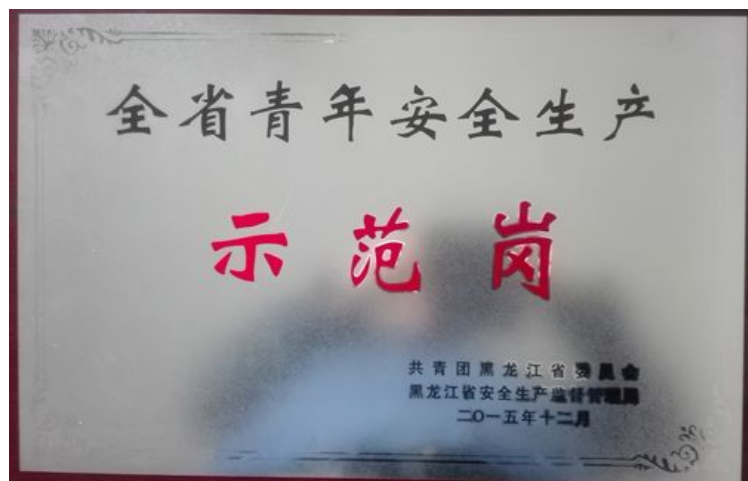 全省青年安全生产
示范岗
共青团黑龙江省委员会
黑龙江省安全生产监督管理局
二〇一五年十二月